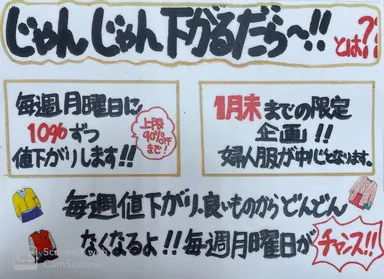 じゃんじゃん下がるだら〜!! とは?!
毎週月曜日に
10%ずつ
値下がりします!!
上限
90%OFF
まで!
1月末までの限定
企画!!
婦人服が中心となります。
毎週値下がり、良いものからどんどん
なくなるよ!!毎週月曜日が
チャンス!!
Scanned with
CamScanner